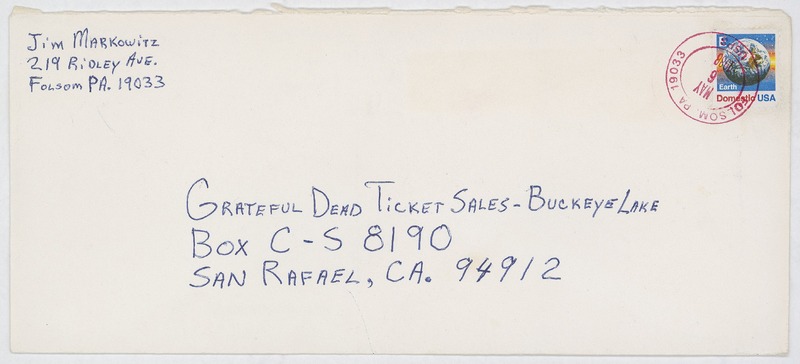 Jim Markowitz
219 Ridley Ave.
Folsom PA. 19033
E
Earth
Domestic USA
FOLSOM, PA 19033
MAY
6
USPS
Grateful Dead Ticket Sales - Buckeye Lake
Box C-S 8190
San Rafael, CA. 94912